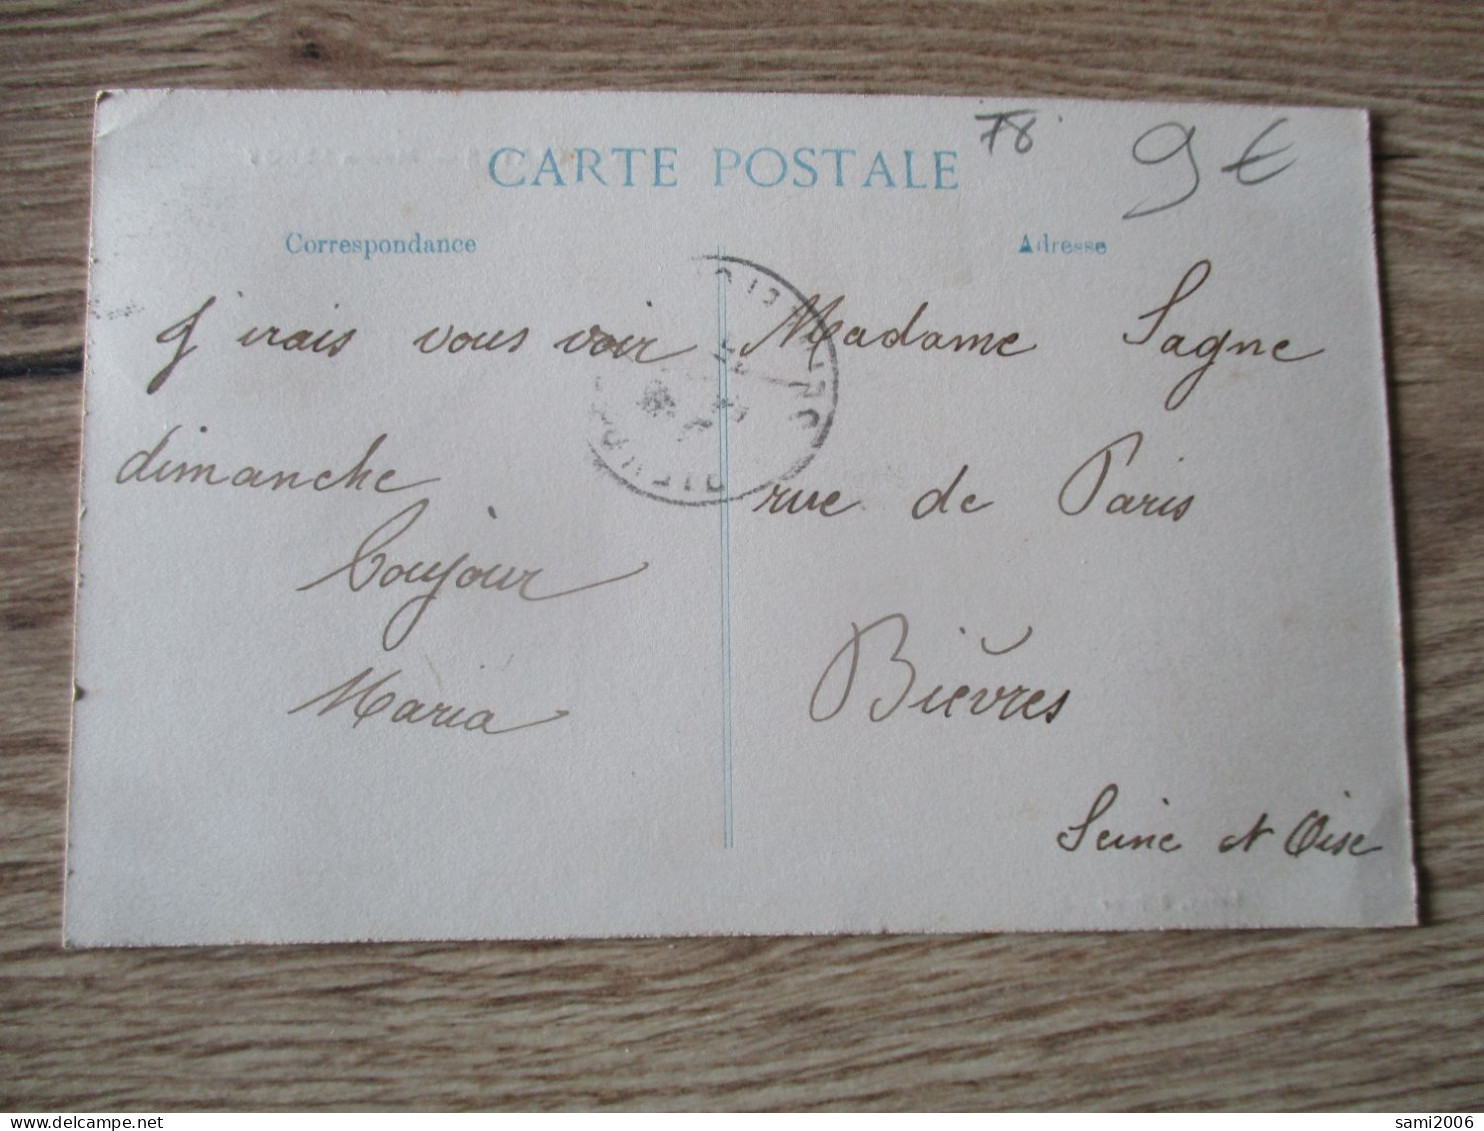 78
9€
CARTE POSTALE
Correspondance
Adresse
J'irais vous voir
dimanche
Boujour
Maria
Madame Sagne
rue de Paris
Bièvres
Seine et Oise
sami2006